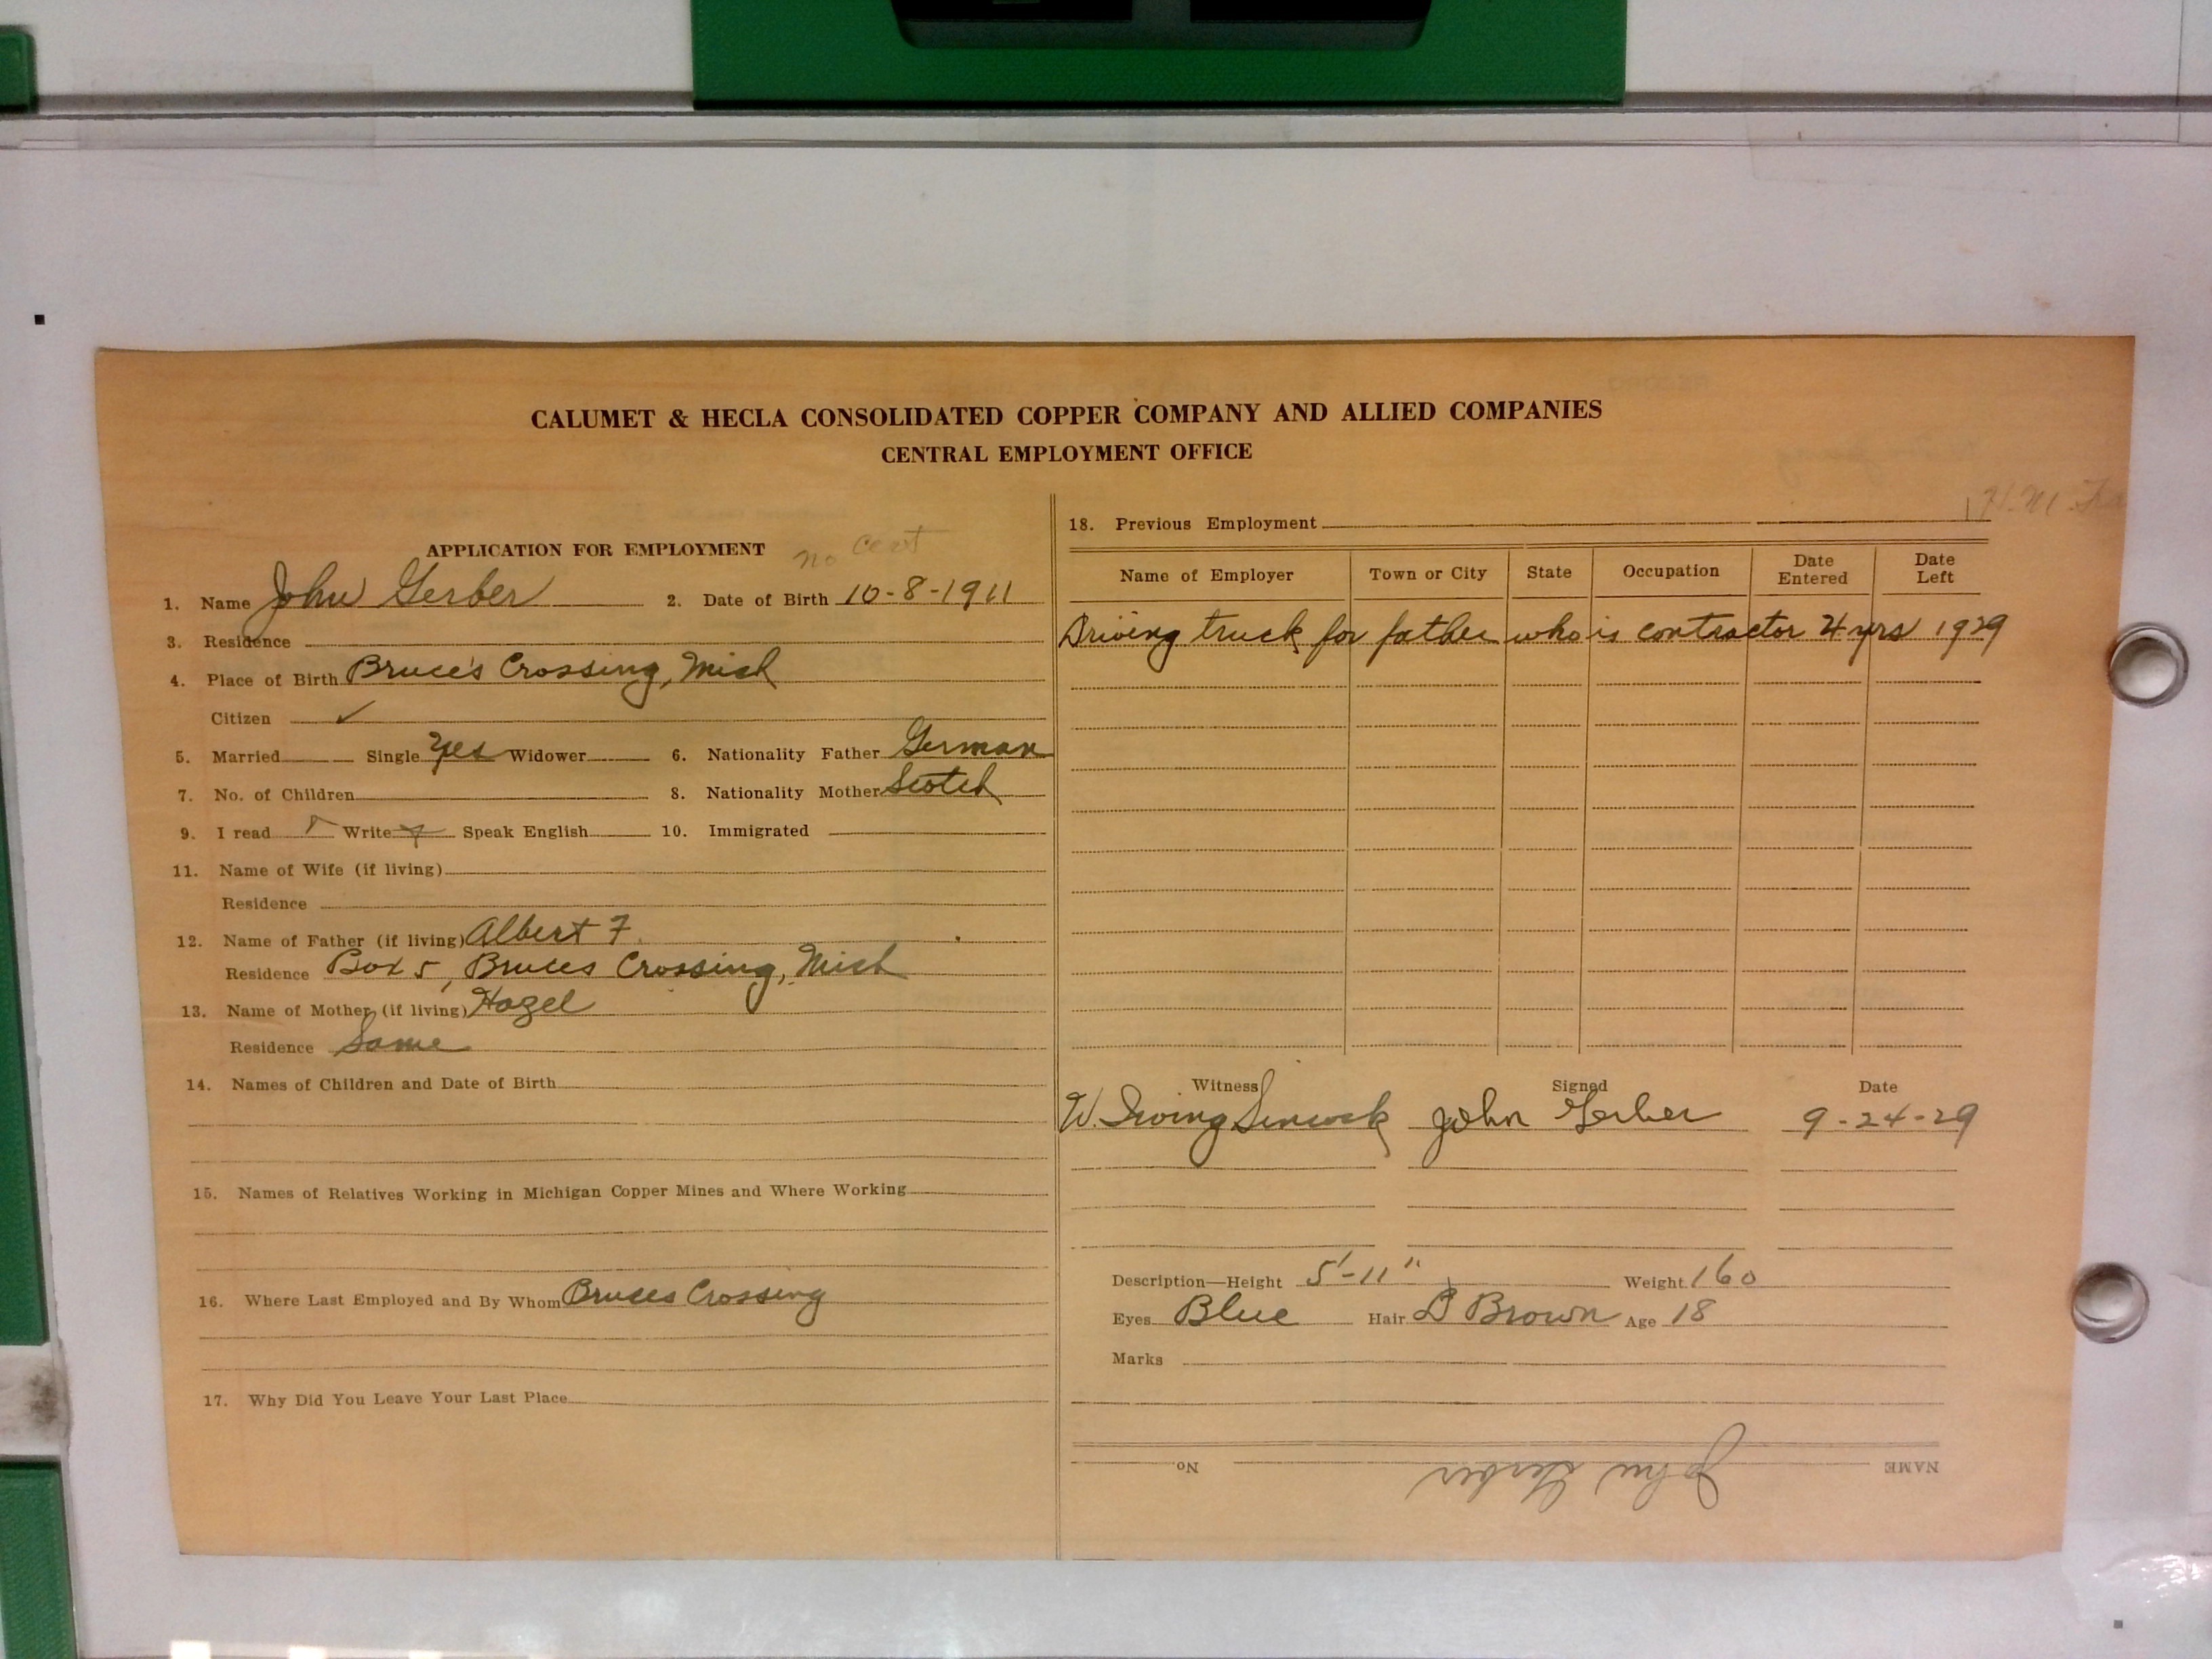 CALUMET & HECLA CONSOLIDATED COPPER COMPANY AND ALLIED COMPANIES
CENTRAL EMPLOYMENT OFFICE
APPLICATION FOR EMPLOYMENT no cert
1. Name John Gerber 2. Date of Birth 10-8-1911
3. Residence
4. Place of Birth Bruce's Crossing, Mich
Citizen ✓
5. Married Single Yes Widower 6. Nationality Father German
7. No. of Children 8. Nationality Mother Scotch
9. I read Write Speak English 10. Immigrated
11. Name of Wife (if living)
Residence
12. Name of Father (if living) Albert F.
Residence Box 5, Bruces Crossing, Mich
13. Name of Mother (if living) Hazel
Residence Same
14. Names of Children and Date of Birth
15. Names of Relatives Working in Michigan Copper Mines and Where Working
16. Where Last Employed and By Whom Bruces Crossing
17. Why Did You Leave Your Last Place
18. Previous Employment
Name of Employer Town or City State Occupation Date Entered Date Left
Driving truck for father who is contractor 4 yrs 1929
Witness Signed Date
W. Irving John Gerber 9-24-29
Description—Height 5'-11" Weight 160
Eyes Blue Hair D Brown Age 18
Marks
NAME John Gerber No